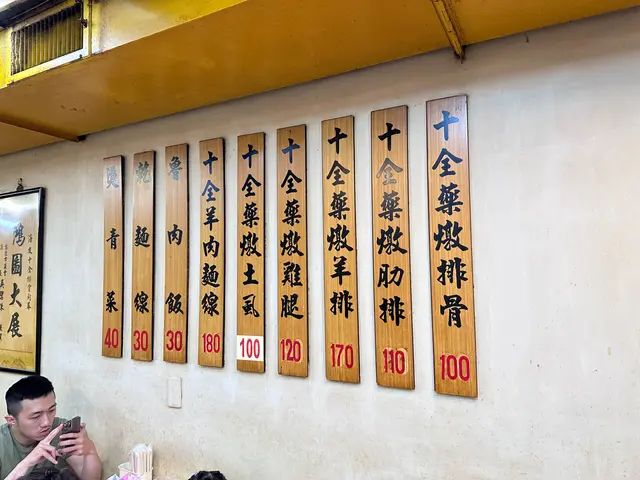 十全藥燉排骨 100
十全藥燉肋排 110
十全藥燉羊排 170
十全藥燉雞腿 120
十全藥燉土虱 100
十全羊肉麵線 180
魯肉飯 30
乾麵線 30
燙青菜 40
鴻圖大展